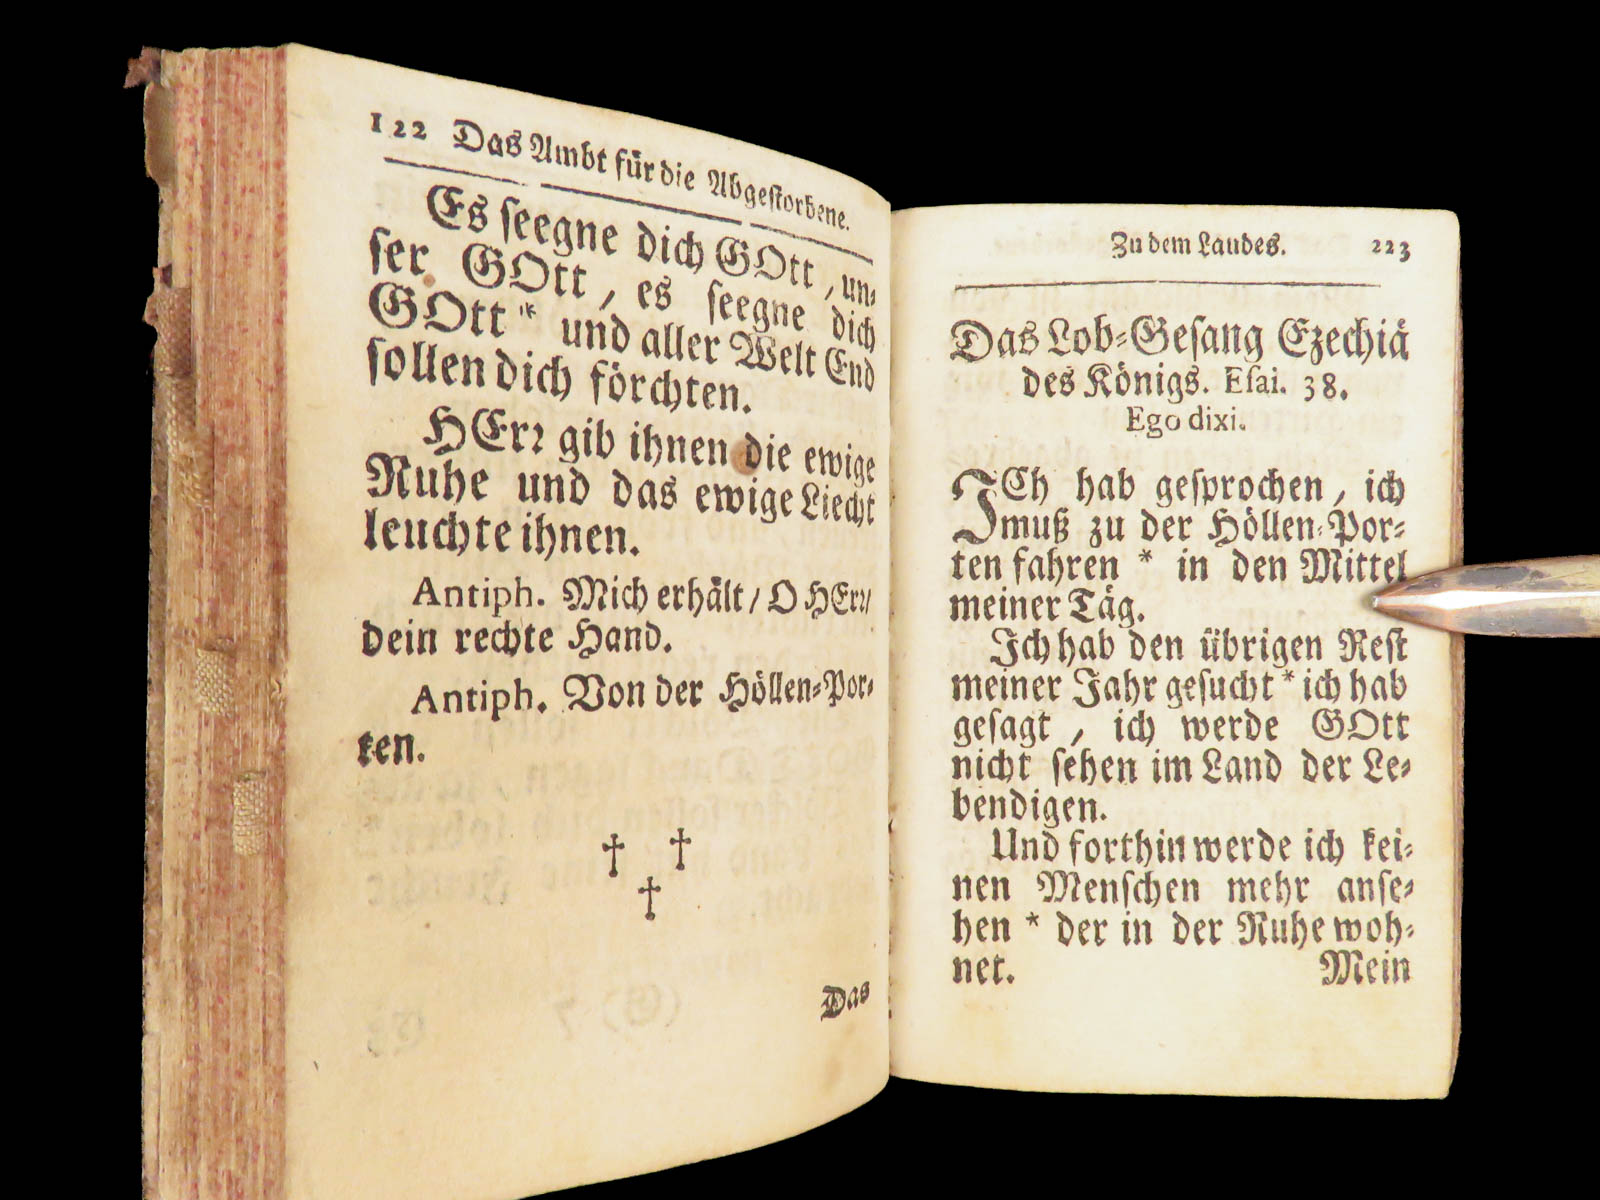 122 Das Ambt für die Abgestorbene.
Es seegne dich GOtt, un-
ser GOtt, es seegne dich
GOtt * und aller Welt End
sollen dich förchten.
HErr gib ihnen die ewige
Ruhe und das ewige Liecht
leuchte ihnen.
Antiph. Mich erhält / O HErr /
dein rechte Hand.
Antiph. Von der Höllen-Por-
ten.
Das
Zu dem Laudes. 223
Das Lob-Gesang Ezechiä
des Königs. Esai. 38.
Ego dixi.
ICh hab gesprochen, ich
muß zu der Höllen-Por-
ten fahren * in den Mittel
meiner Täg.
Ich hab den übrigen Rest
meiner Jahr gesucht * ich hab
gesagt, ich werde GOtt
nicht sehen im Land der Le-
bendigen.
Und forthin werde ich kei-
nen Menschen mehr anse-
hen * der in der Ruhe woh-
net. Mein